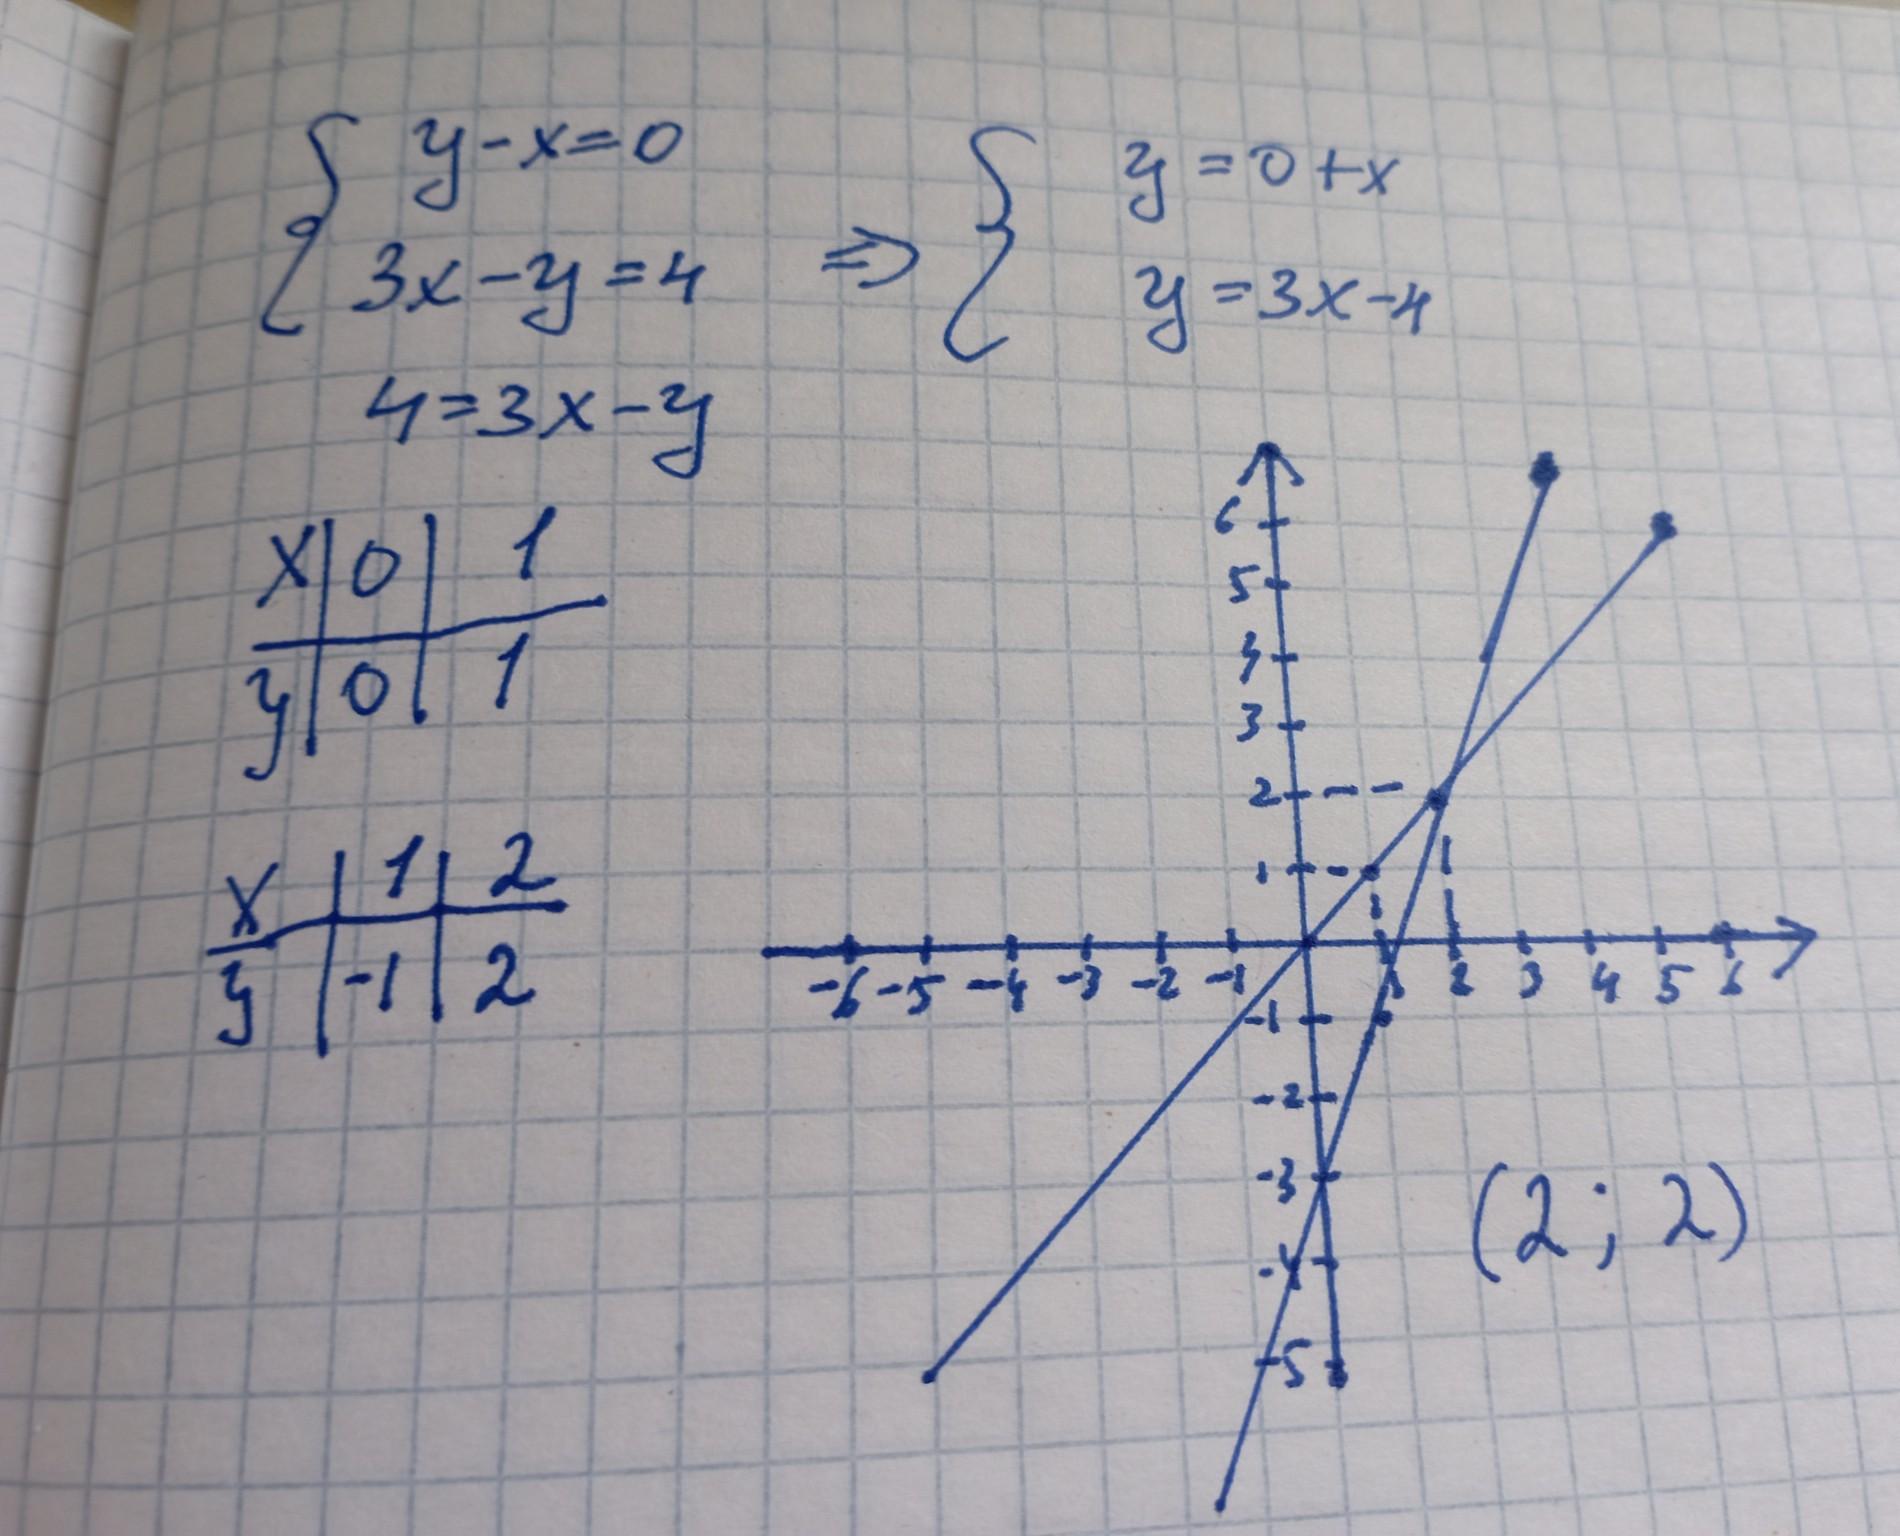 y-x=0
3x-y=4
=> y=0+x
y=3x-4
4=3x-y
x 0 1
y 0 1
x 1 2
y -1 2
6
5
4
3
2
1
-6 -5 -4 -3 -2 -1 1 2 3 4 5 6
-1
-2
-3
-4
-5
(2; 2)